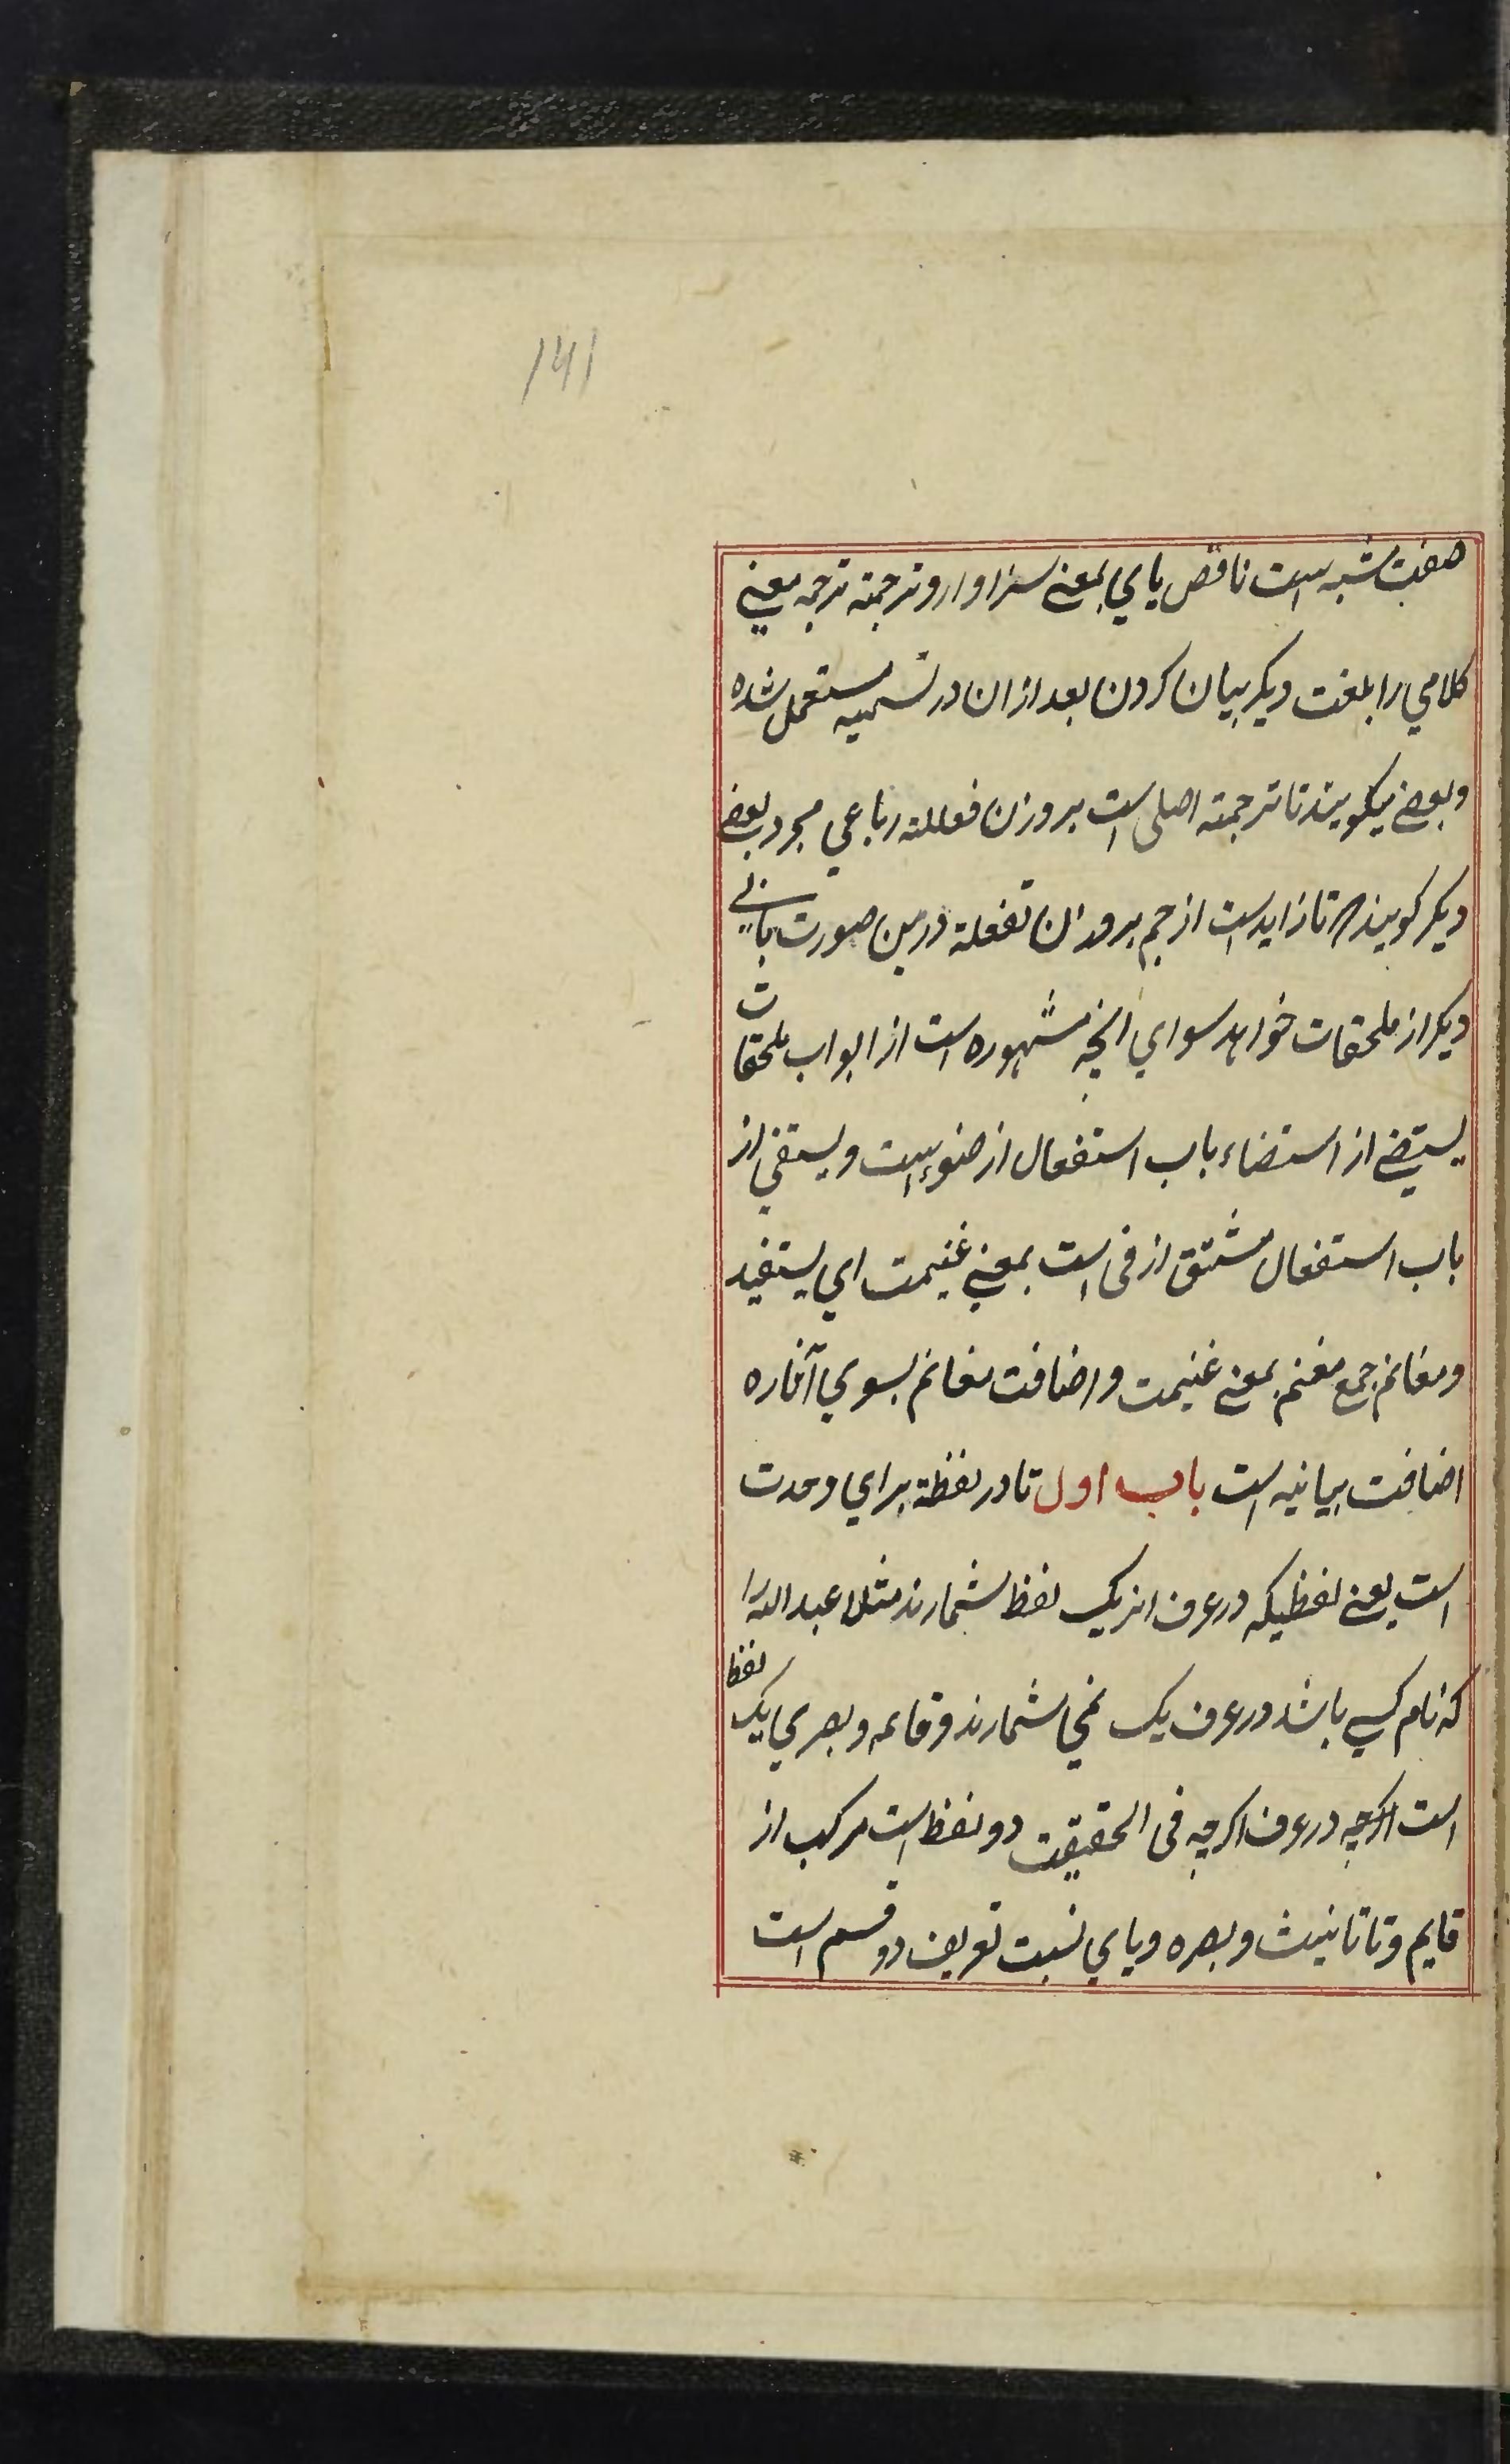 ۱۴۱
صفت مشبه است ناقص یای بمعنی سزاوار و ترجمة ترجمه معنی
کلامی را بلغت دیگر بیان کردن بعد ازان در تسمیه مستعمل شده
و بعضی میگویند تا ترجمة اصلی است بروزن فعللة رباعی مجرد بعضی
دیگر گویند تا زاید است از رجم بروزن تفعلة درین صورت بابی
دیگر از ملحقات خواهد سوای آنچه مشهوره است از ابواب ملحقات
یستضی از استضاء باب استفعال از ضوء است و یستفی از
باب استفعال مشتق از فی است بمعنی غنیمت ای یستفید
و مغانم جمع مغنم بمعنی غنیمت و اضافت مغانم بسوی آثاره
اضافت بیانیه است باب اول تا در لفظة برای وحدت
است یعنی لفظیکه در عرف انرا یک لفظ شمارند مثلا عبد الله را
که نام کسی باشد در عرف یک نمی شمارند و قائمه و بصری یک لفظ
است اگرچه در عرف اگرچه فی الحقیقت دو لفظ است مرکب از
قایم و تا تانیث و بصره و یای نسبت تعریف دو قسم است